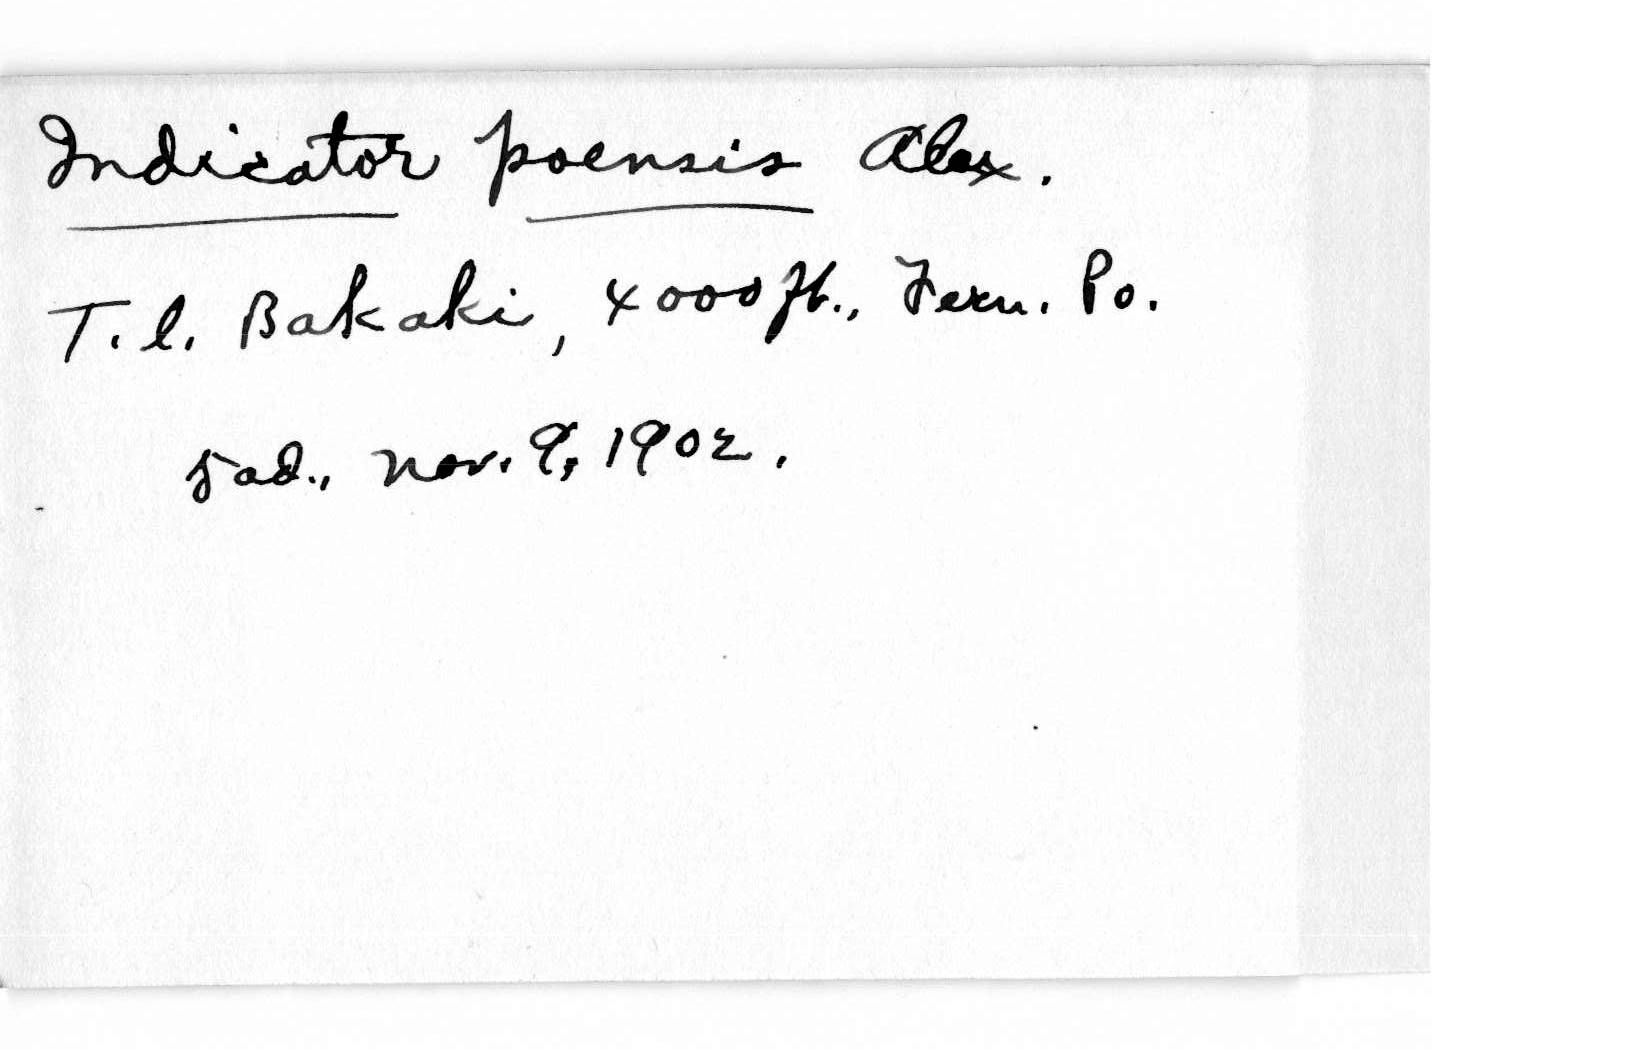 Indicator poensis Alex.
T. l. Bakaki, 4000 ft., Fern. Po.
ad., Nov. 9, 1902.